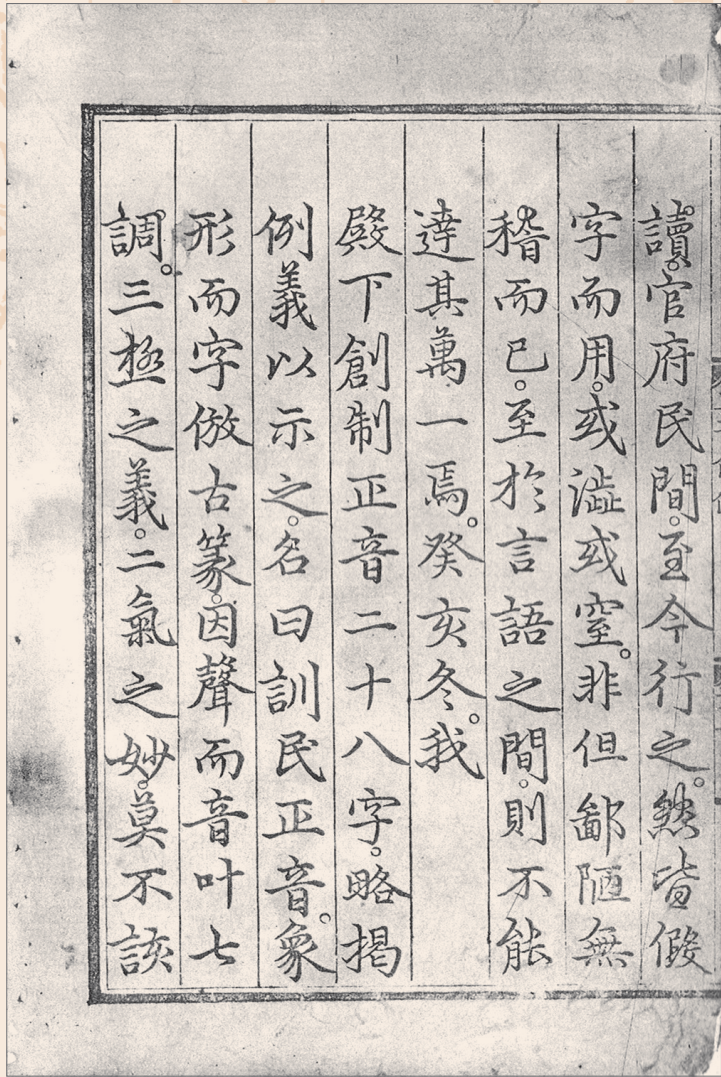 讀。官府民間。至今行之。然皆假
字而用。或澁或窒。非但鄙陋無
稽而已。至於言語之間。則不能
達其萬一焉。癸亥冬。我
殿下創制正音二十八字。略揭
例義以示之。名曰訓民正音。象
形而字倣古篆。因聲而音叶七
調。三極之義。二氣之妙。莫不該